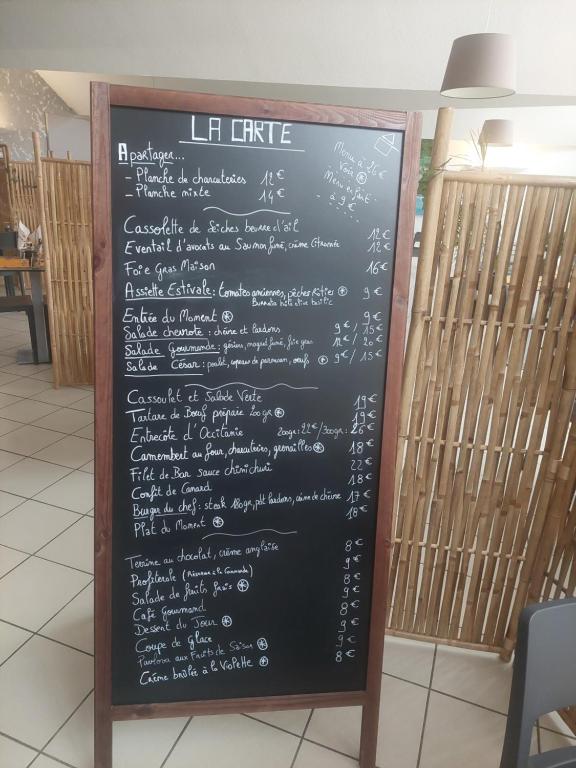 LA CARTE
A partager...
- Planche de charcuteries 12€
- Planche mixte 14€
Menu à 26€
Voir ⊛
Menu enfant
à 9€
Cassolette de Seiches beurre d'ail 12€
Eventail d'avocats au Saumon fumé, crème Citronnée 12€
Foie Gras Maison 16€
Assiette Estivale : Tomates anciennes, pêches rôties ⊛ 9€
Burrata basilic
Entrée du Moment ⊛ 9€
Salade chevrote : chèvre et lardons 9€ / 15€
Salade Gourmande : gésiers, magret fumé, foie gras 12€ / 20€
Salade César : poulet, copeaux de parmesan, oeufs ⊛ 9€ / 15€
Cassoulet et Salade Verte 19€
Tartare de Boeuf préparée 200gr ⊛ 19€
Entrecôte d'Occitanie 200gr : 22€ / 300gr : 26€
Camembert au four, charcuteries, grenailles ⊛ 18€
Filet de Bar sauce chimichuri 22€
Confit de Canard 18€
Burger du chef : steak 180gr, lardons, crème de chèvre 17€
Plat du Moment ⊛ 18€
Terrine au chocolat, crème anglaise 8€
Profiterole (Réserver à la Commande) 9€
Salade de fruits frais ⊛ 8€
Café Gourmand 9€
Dessert du Jour ⊛ 8€
Coupe de Glace 9€
Pavlova aux Fruits de Saison ⊛ 9€
Crème brûlée à la Violette ⊛ 8€